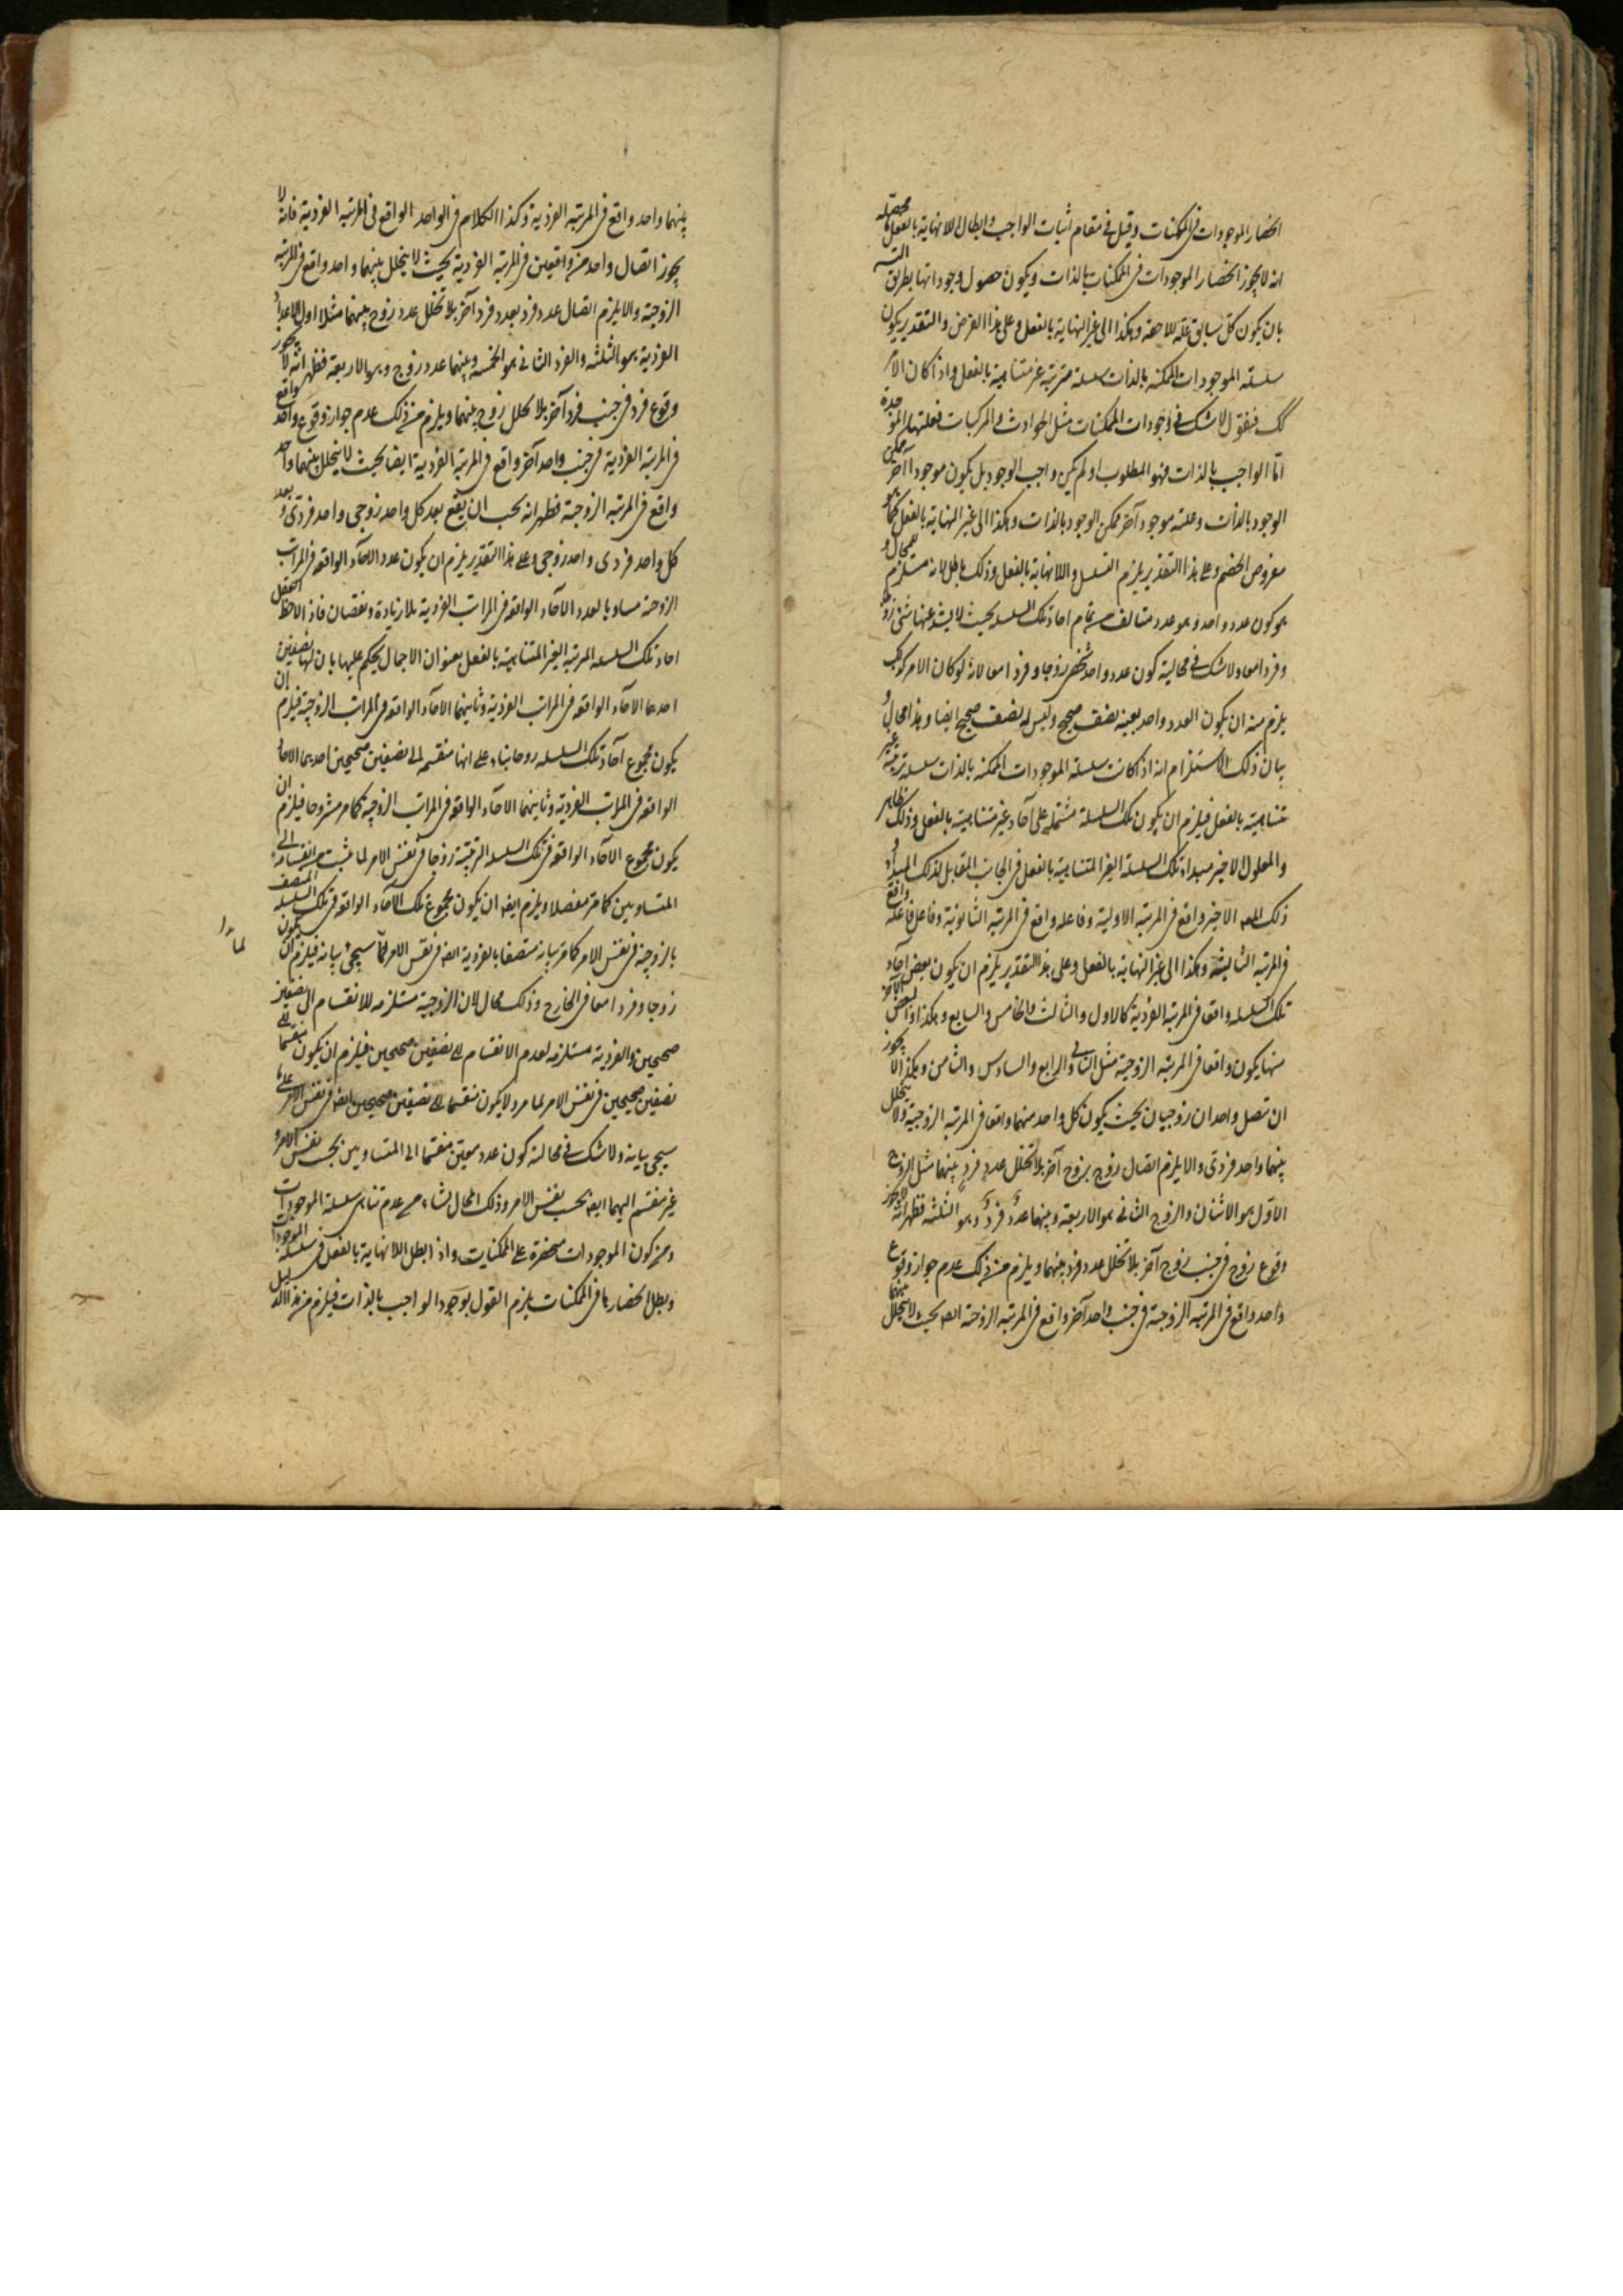 انحصار الموجودات فى الممكنات وقيل فى مقام اثبات الواجب وابطال اللانهاية بالفعل محصله
انه لا يجوز انحصار الموجودات فى الممكنات بالذات ويكون حصول وجوداتها بطريق التسـ
بان يكون كل سابق علة للاحقه وهكذا الى غير النهاية بالفعل وعلى هذا الفرض والتقدير يكون
سلسلة الموجودات الممكنة بالذات سلسلة مترتبة غير متناهية بالفعل واذا كان الامر
كك فنقول لا شك فى وجودات الممكنات مثل الحوادث والمركبات فعلتها الموجدة
امّا الواجب بالذات فهو المطلوب او لم يكن واجب الوجود بل يكون موجودا آخر ممكن
الوجود بالذات وعلته موجود آخر ممكن الوجود بالذات وهكذا الى غير النهاية بالفعل كما هو
مفروض الخصم وعلى هذا التقدير يلزم التسلسل واللانهاية بالفعل وذلك باطل لانه مستلزم لمحال و
هو كون عدد واحد وهو عدد متالف من تمام احاد تلك السلسله بحيث لا يشذ عنها شئ زوجا
وفردا معا ولا شك فى محالية كون عدد واحد شخصى زوجا وفردا معا لانه لو كان الامر كذلك
يلزم منه ان يكون العدد واحد بعينه نصف صحيح وليس له نصف صحيح ايضا وهذا محال و
بيان ذلك الاستلزام انه اذا كانت سلسلة الموجودات الممكنه بالذات سلسلة مترتبة غير
متناهية بالفعل فيلزم ان يكون تلك السلسلة مشتملة على آحاد غير متناهية بالفعل وذلك ظاهر
والمعلول الاخير مبدا تلك السلسلة الغير المتناهية بالفعل فى الجانب المقابل لذلك المبدأ و
ذلك المعـ الاخير واقع فى المرتبه الاولية وفاعله واقع فى المرتبه الثانوية وفاعل فاعله واقع
فى المرتبه الثالثية وهكذا الى غير النهاية بالفعل وعلى هذا التقدير يلزم ان يكون بعض احاد
تلك السلسله واقعا فى المرتبه الفردية كالاول والثالث والخامس والسابع وهكذا والبعض الآخر
منها يكون واقعا فى المرتبه الزوجية مثل الثانى والرابع والسادس والثامن وهكذا لا يجوز
ان تصل واحدان زوجيان بحيث يكون كل واحد منهما واقعا فى المرتبه الزوجية ولا يتخلل
بينهما واحد فردى والا يلزم اتصال زوج بزوج آخر بلا تخلل عدد فرد بينهما مثل الزوج
الاول هو الاثنان والزوج الثانى هو الاربعة وبينهما عدد فرد وهو الثلثة فظهر انه لا يجوز
وقوع زوج فى جنب زوج آخر بلا تخلل عدد فرد بينهما ويلزم من ذلك عدم جواز وقوع
واحد واقع فى المرتبه الزوجية فى جنب واحد آخر واقع فى المرتبه الزوجية ايضـ بحيث لا يتخلل بينهما
بينهما واحد واقع فى المرتبه الفردية وكذا الكلام فى الواحد الواقع فى المرتبه الفردية فانه لا
يجوز اتصال واحد منه واقعين فى المرتبه الفردية بحيث لا يتخلل بينهما واحد واقع فى المرتبه
الزوجية والا يلزم اتصال عدد فرد بعدد فرد آخر بلا تخلل عدد زوج بينهما مثلا اول الاعداد
الفردية هو الثلثه والفرد الثانى هو الخمسة وبينهما عدد زوج وهو الاربعة فظهر انه لا يجوز
وقوع فرد فى جنب فرد آخر بلا تخلل زوج بينهما ويلزم من ذلك عدم جواز وقوع واحد واقع
فى المرتبه الفردية فى جنب واحد آخر واقع فى المرتبه الفردية ايضا بحيث لا يتخلل بينهما واحد
واقع فى المرتبه الزوجية فظهر انه يجب ان يقع بعد كل واحد زوجى واحد فردى و بعد
كل واحد فردى واحد زوجى وعلى هذا التقدير يلزم ان يكون عدد الآحاد الواقعه فى المراتب
الزوجية مساويا لعدد الآحاد الواقعه فى المراتب الفردية بلا زيادة ونقصان فاذا لاحظ العقل
احاد تلك السلسله المرتبه الغير المتناهية بالفعل بعنوان الاجمال يحكم عليها بان لها نصفين
احدهما الآحاد الواقعه فى المراتب الفردية وثانيهما الآحاد الواقعه فى المراتب الزوجية فيلزم ان
يكون مجموع آحاد تلك السلسله زوجا بناء على انها منقسمه الى نصفين صحيحين احدهما الآحاد
الواقعه فى المراتب الفردية وثانيهما الآحاد الواقعه فى المراتب الزوجية كما مر مشروحا فيلزم ان
يكون مجموع الآحاد الواقعه فى تلك السلسله الترتيبية زوجا فى نفس الامر لما ثبت من انقسامه الى
المتساويين كما مر مفصلا ويلزم ايضـ ان يكون مجموع تلك الآحاد الواقعه فى تلك السلسله المتصف
بالزوجية فى نفس الامر كما مر بيانه متصفا بالفردية ايضـ فى نفس الامر لما سيجئ بيانه فيلزم ان يكون
لما مرّ
زوجا وفردا معا فى الخارج وذلك محال لان الزوجية مستلزمه للانقسام الى نصفين
صحيحين والفردية مستلزمه لعدم الانقسام الى نصفين صحيحين فيلزم ان يكون منقسما الى
نصفين صحيحين فى نفس الامر لما مر ولا يكون منقسما الى نصفين صحيحين ايضـ فى نفس الامر على ما
سيجئ بيانه ولا شك فى محالية كون عدد معين منقسما الى المتساويين بحسب نفس الامر و
غير منقسم اليهما ايضـ بحسب نفس الامر وذلك المحال نشاء من عدم تناهى سلسلة الموجودات
ومن كون الموجودات منحصرة على الممكنات واذا بطل اللانهاية بالفعل فى سلسلة الموجودات
وبطل انحصارها فى الممكنات يلزم القول بوجود الواجب بالذات فيلزم من هذا الدليل